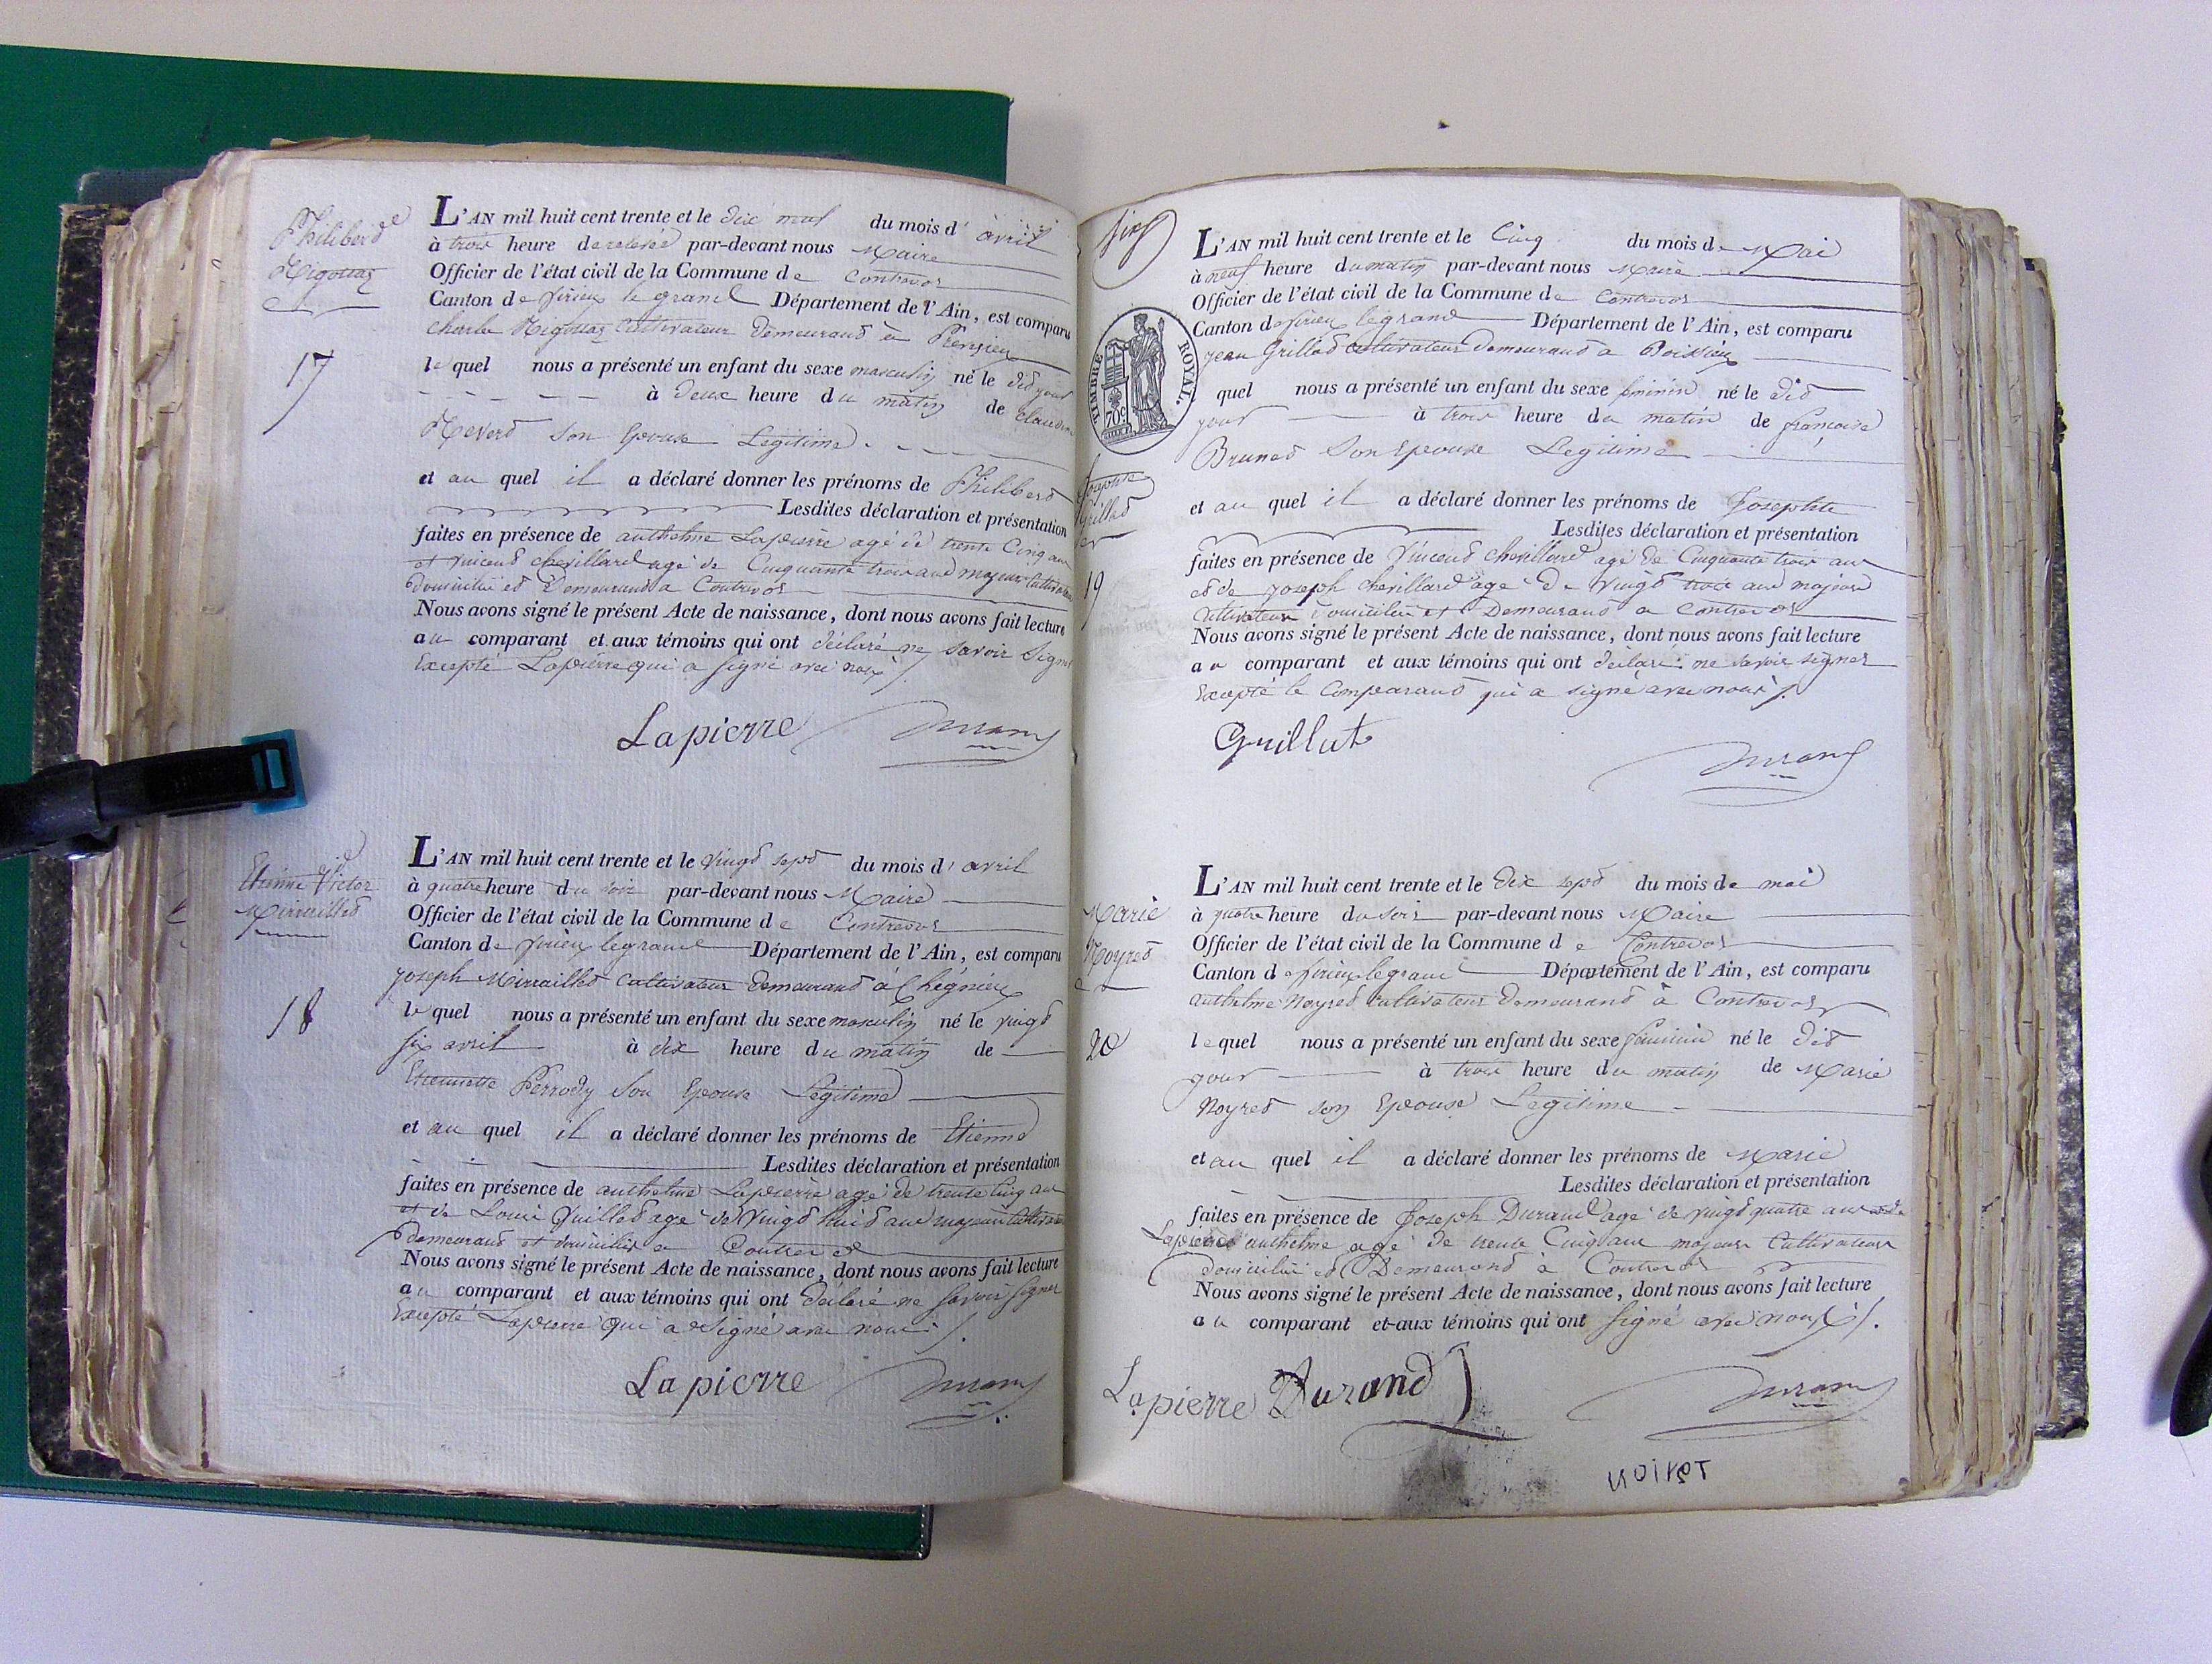 Philiberd
Nigouaz
17
L'AN mil huit cent trente et le dix neuf du mois d' avril
à trois heure de relevée par-devant nous Maire
Officier de l'état civil de la Commune de Contrevos
Canton de Virieu le grand Département de l'Ain, est comparu
charle Nigouaz cultivateur demeurand à Prengieu
lequel nous a présenté un enfant du sexe masculin né le did jour
à deux heure du matin de Claudine
Reverd son Epouse Legitime
et au quel il a déclaré donner les prénoms de Philiberd
Lesdites déclaration et présentation
faites en présence de anthelme Lapierre agé de trente Cinq an
et vincend chevillard agé de Cinquante trois and majeur Cultivateur
domicilié ed Demeurand a Contrevos
Nous avons signé le présent Acte de naissance, dont nous avons fait lecture
au comparant et aux témoins qui ont déclaré ne savoir signer
Excepté Lapierre qui a signé avec nous
Lapierre Durand
Etienne Victor
Mirrailled
18
L'AN mil huit cent trente et le vingd sepd du mois d' avril
à quatre heure du soir par-devant nous Maire
Officier de l'état civil de la Commune de Contrevos
Canton de Virieu le grand Département de l'Ain, est comparu
joseph Mirrailled Cultivateur demeurand à Chégnieu
lequel nous a présenté un enfant du sexe masculin né le vingd
six avril à dix heure du matin de
Etiennette Perrody Son Epouse Légitime
et au quel il a déclaré donner les prénoms de Etienne
Lesdites déclaration et présentation
faites en présence de anthelme Lapierre agé de trente Cinq an
et de Loui Juilled agé de Vingd huid and majeur Cultivateur
demeurand et domicilié a Contrevos
Nous avons signé le présent Acte de naissance, dont nous avons fait lecture
au comparant et aux témoins qui ont déclaré ne savoir signer
Excepté Lapierre qui a signé avec nous
Lapierre Durand
TIMBRE ROYAL.
70c
Josephte
Grillod
19
L'AN mil huit cent trente et le Cinq du mois de Mai
à neuf heure du matin par-devant nous Maire
Officier de l'état civil de la Commune de Contrevos
Canton de Virieu le grand Département de l'Ain, est comparu
jean Grillod Cultivateur demeurand a Boissieu
quel nous a présenté un enfant du sexe feminin né le did
jour à trois heure du matin de françoise
Bruned Son Epouse Legitime
et au quel il a déclaré donner les prénoms de Josephte
Lesdites déclaration et présentation
faites en présence de Vincend chevillard agé de Cinquante trois an
ed de joseph chevillard agé de Vingd trois and majeur
Cultivateur Domicilié et Demeurand a Contrevos
Nous avons signé le présent Acte de naissance, dont nous avons fait lecture
au comparant et aux témoins qui ont déclaré ne savoir signer
Excepté le Comparand qui a signé avec nous
Guillut
Durand
Marie
Noyred
20
L'AN mil huit cent trente et le dix sepd du mois de mai
à quatre heure du soir par-devant nous Maire
Officier de l'état civil de la Commune de Contrevos
Canton de Virieu le grand Département de l'Ain, est comparu
anthelme Noyred Cultivateur demeurand à Contrevos
lequel nous a présenté un enfant du sexe féminin né le did
jour à trois heure du matin de Marie
Noyred son Epouse Legitime
et au quel il a déclaré donner les prénoms de Marie
Lesdites déclaration et présentation
faites en présence de Joseph Durand agé de vingd quatre an et de
Lapierre anthelme agé de trente Cinq and majeur Cultivateur
domicilié ed Demeurand à Contrevos
Nous avons signé le présent Acte de naissance, dont nous avons fait lecture
au comparant et aux témoins qui ont signé avec nous
Lapierre Durand Durand
noiret